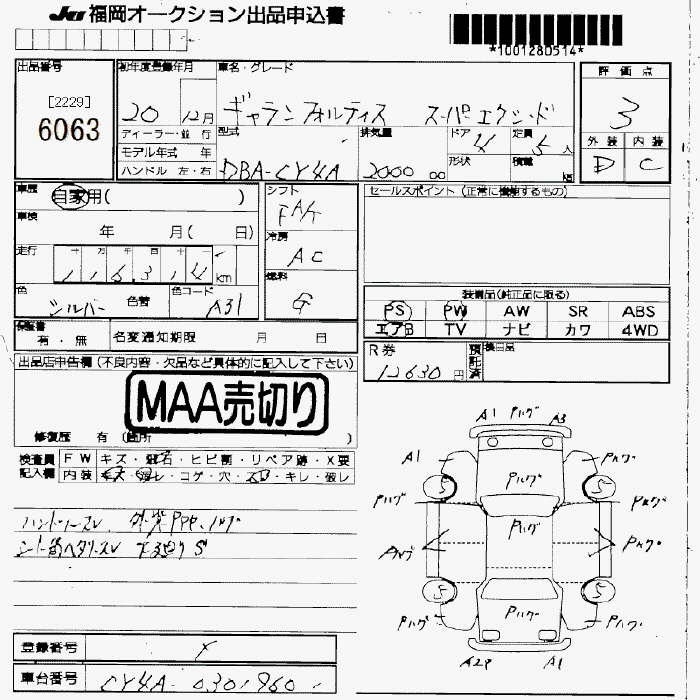 JU 福岡オークション出品申込書
*1001280514*
出品番号
[2229]
6063
初年度登録年月
20 12月
ディーラー・並 行
モデル年式 年
ハンドル 左・右
車名・グレード
ギャラン フォルティス スーパーエクシード
型式
DBA-CY4A
排気量
2000 cc
ドア
4
定員
5 人
形状
積載
kg
評価点
3
外装 内装
D C
車歴
自家用( )
車検
年 月( 日)
走行
十 万 千 百 十 一
1 1 6 3 1 4 km
色
シルバー 色替
色コード
A31
シフト
FAT
冷房
AC
燃料
G
保証書
有・無
名変通知期限 月 日
セールスポイント (正常に機能するもの)
装備品(純正品に限る)
PS PW AW SR ABS
エアB TV ナビ カワ 4WD
R券
12630 円
預託済
後日品
出品店申告欄 (不良内容・欠品など具体的に記入して下さい)
MAA売切り
修復歴 有 (箇所 )
検査員記入欄
FW キズ・飛石・ヒビ割・リペア跡・X要
内装 キズ・汚レ・コゲ・穴・スレ・キレ・破レ
ハンドルスレ 外装PPP、ハゲ
シート前ヘタリ・スレ 下廻りS
A1 Pハゲ A3
A1 Pハゲ Pハゲ
5 5
Pハゲ Pハゲ Pハゲ
Pハゲ Pハゲ
5 5
Pハゲ Pハゲ Pハゲ
A2P A1
登録番号
車台番号 CY4A-0301960